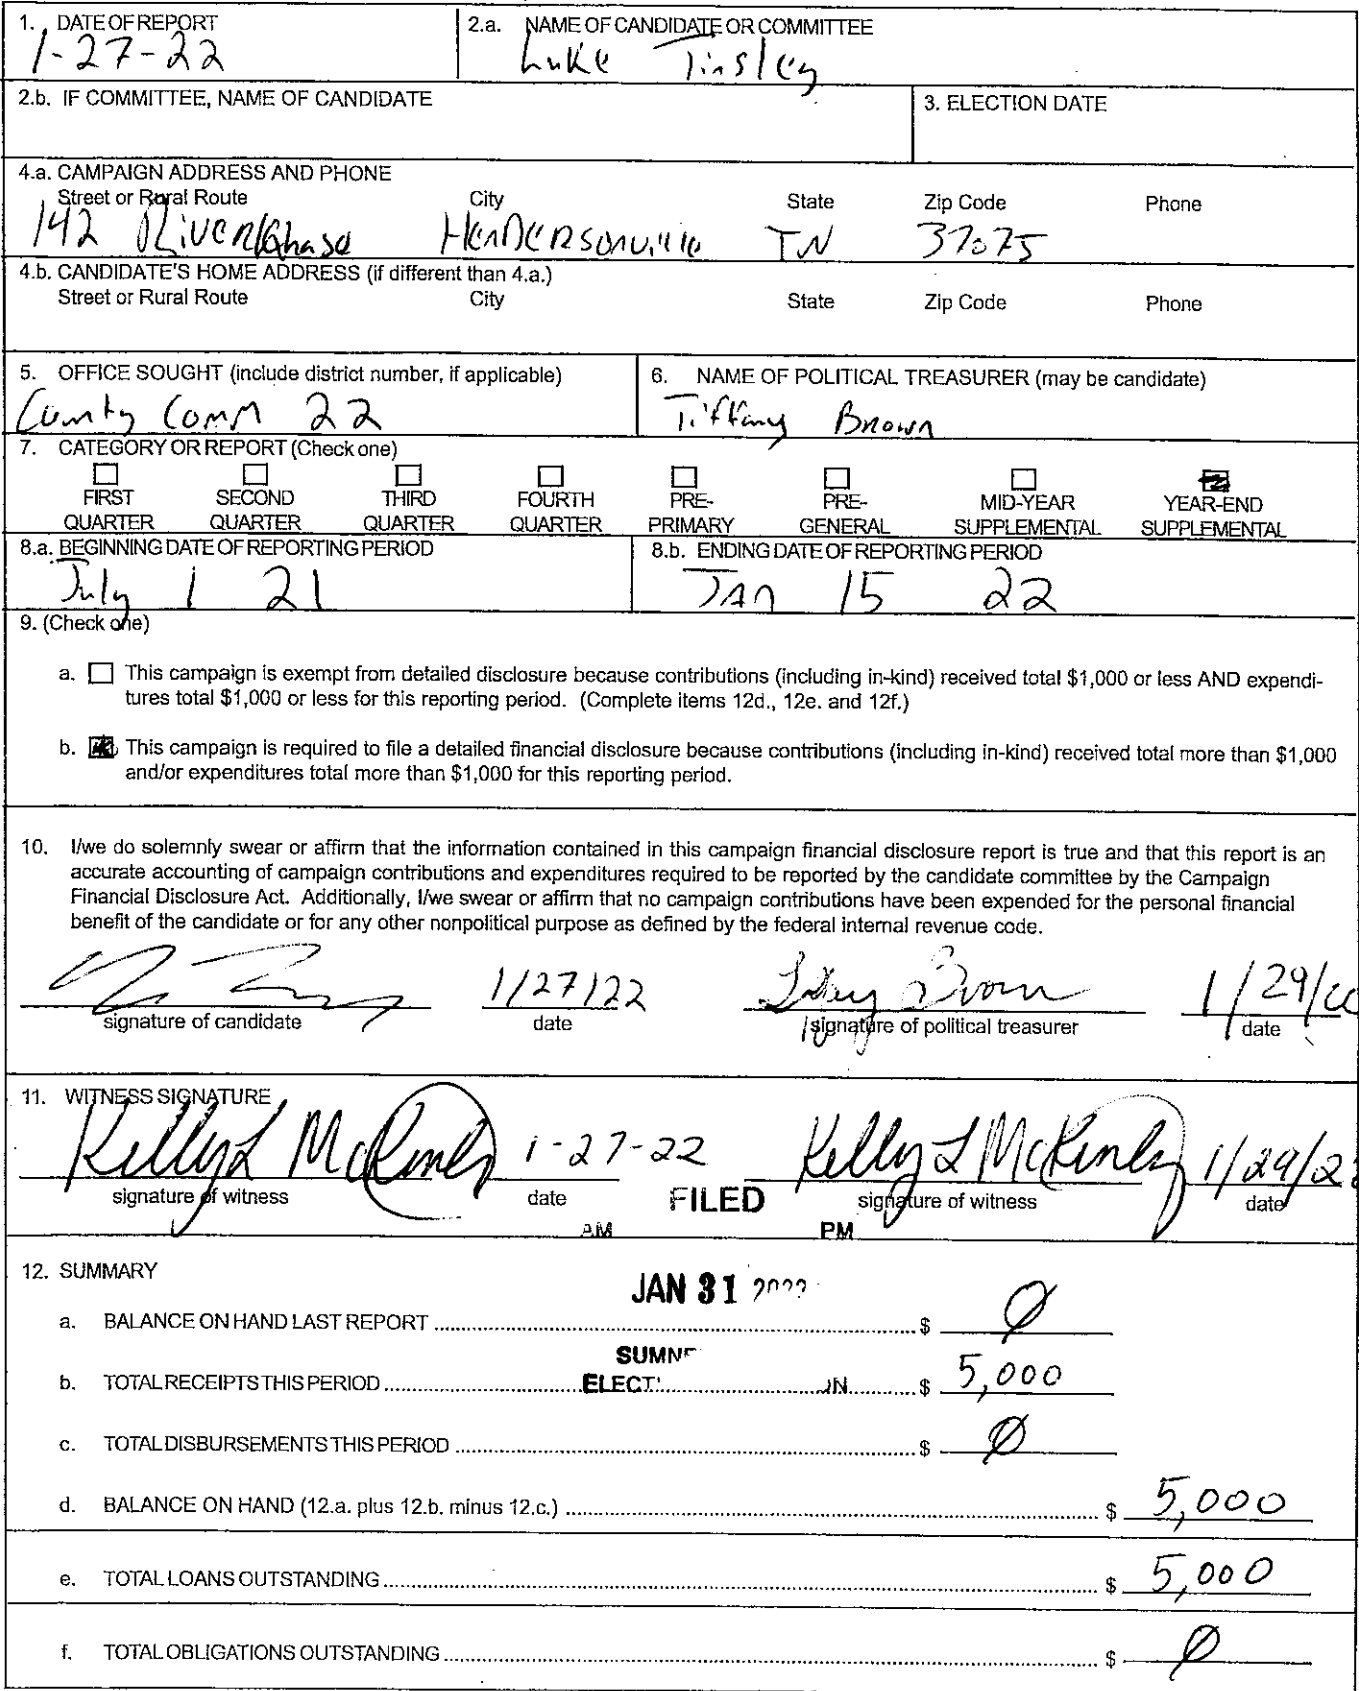 1. DATE OF REPORT
1-27-22
2.a. NAME OF CANDIDATE OR COMMITTEE
Luke Tinsley
2.b. IF COMMITTEE, NAME OF CANDIDATE
3. ELECTION DATE
4.a. CAMPAIGN ADDRESS AND PHONE
Street or Rural Route City State Zip Code Phone
142 River Chase Hendersonville TN 37075
4.b. CANDIDATE'S HOME ADDRESS (if different than 4.a.)
Street or Rural Route City State Zip Code Phone
5. OFFICE SOUGHT (include district number, if applicable)
County Comm 22
6. NAME OF POLITICAL TREASURER (may be candidate)
Tiffany Brown
7. CATEGORY OR REPORT (Check one)
FIRST QUARTER
SECOND QUARTER
THIRD QUARTER
FOURTH QUARTER
PRE-PRIMARY
PRE-GENERAL
MID-YEAR SUPPLEMENTAL
YEAR-END SUPPLEMENTAL
8.a. BEGINNING DATE OF REPORTING PERIOD
July 1 21
8.b. ENDING DATE OF REPORTING PERIOD
JAN 15 22
9. (Check one)
a. This campaign is exempt from detailed disclosure because contributions (including in-kind) received total $1,000 or less AND expendi-
tures total $1,000 or less for this reporting period. (Complete items 12d., 12e. and 12f.)
b. This campaign is required to file a detailed financial disclosure because contributions (including in-kind) received total more than $1,000
and/or expenditures total more than $1,000 for this reporting period.
10. I/we do solemnly swear or affirm that the information contained in this campaign financial disclosure report is true and that this report is an
accurate accounting of campaign contributions and expenditures required to be reported by the candidate committee by the Campaign
Financial Disclosure Act. Additionally, I/we swear or affirm that no campaign contributions have been expended for the personal financial
benefit of the candidate or for any other nonpolitical purpose as defined by the federal internal revenue code.
1/27/22 Brown 1/29/
signature of candidate date signature of political treasurer date
11. WITNESS SIGNATURE
Kelly L McKinley 1-27-22 Kelly L McKinley 1/29/2
signature of witness date FILED signature of witness date
AM PM
12. SUMMARY
JAN 31
a. BALANCE ON HAND LAST REPORT $ 0
SUMNE
b. TOTAL RECEIPTS THIS PERIOD ELECT $ 5,000
c. TOTAL DISBURSEMENTS THIS PERIOD $ 0
d. BALANCE ON HAND (12.a. plus 12.b. minus 12.c.) $ 5,000
e. TOTAL LOANS OUTSTANDING $ 5,000
f. TOTAL OBLIGATIONS OUTSTANDING $ 0